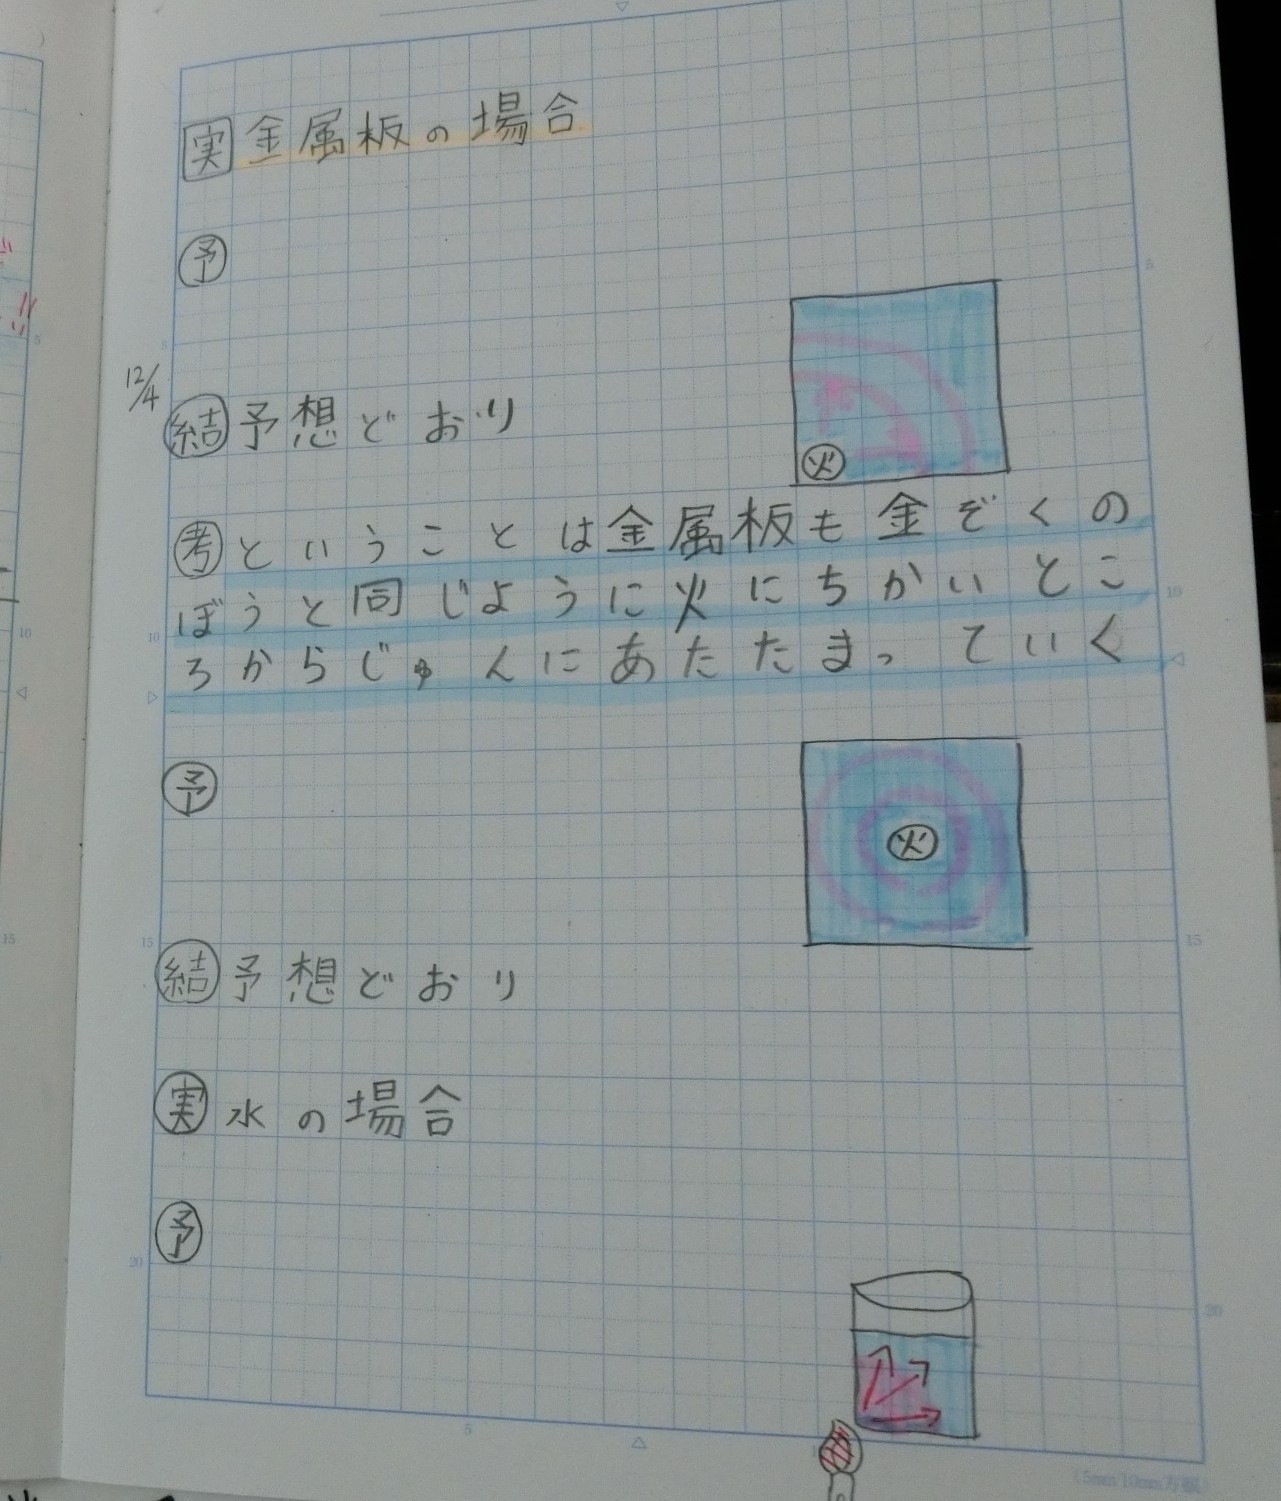 実 金属板の場合
予
12/4
結 予想どおり
火
考 ということは金属板も金ぞくの
ぼうと同じように火にちかいとこ
ろからじゅんにあたたまっていく
予
火
結 予想どおり
実 水の場合
予
5
10
15
20
5
10
15
20
5
5
10
15
(5mm 10mm方眼)